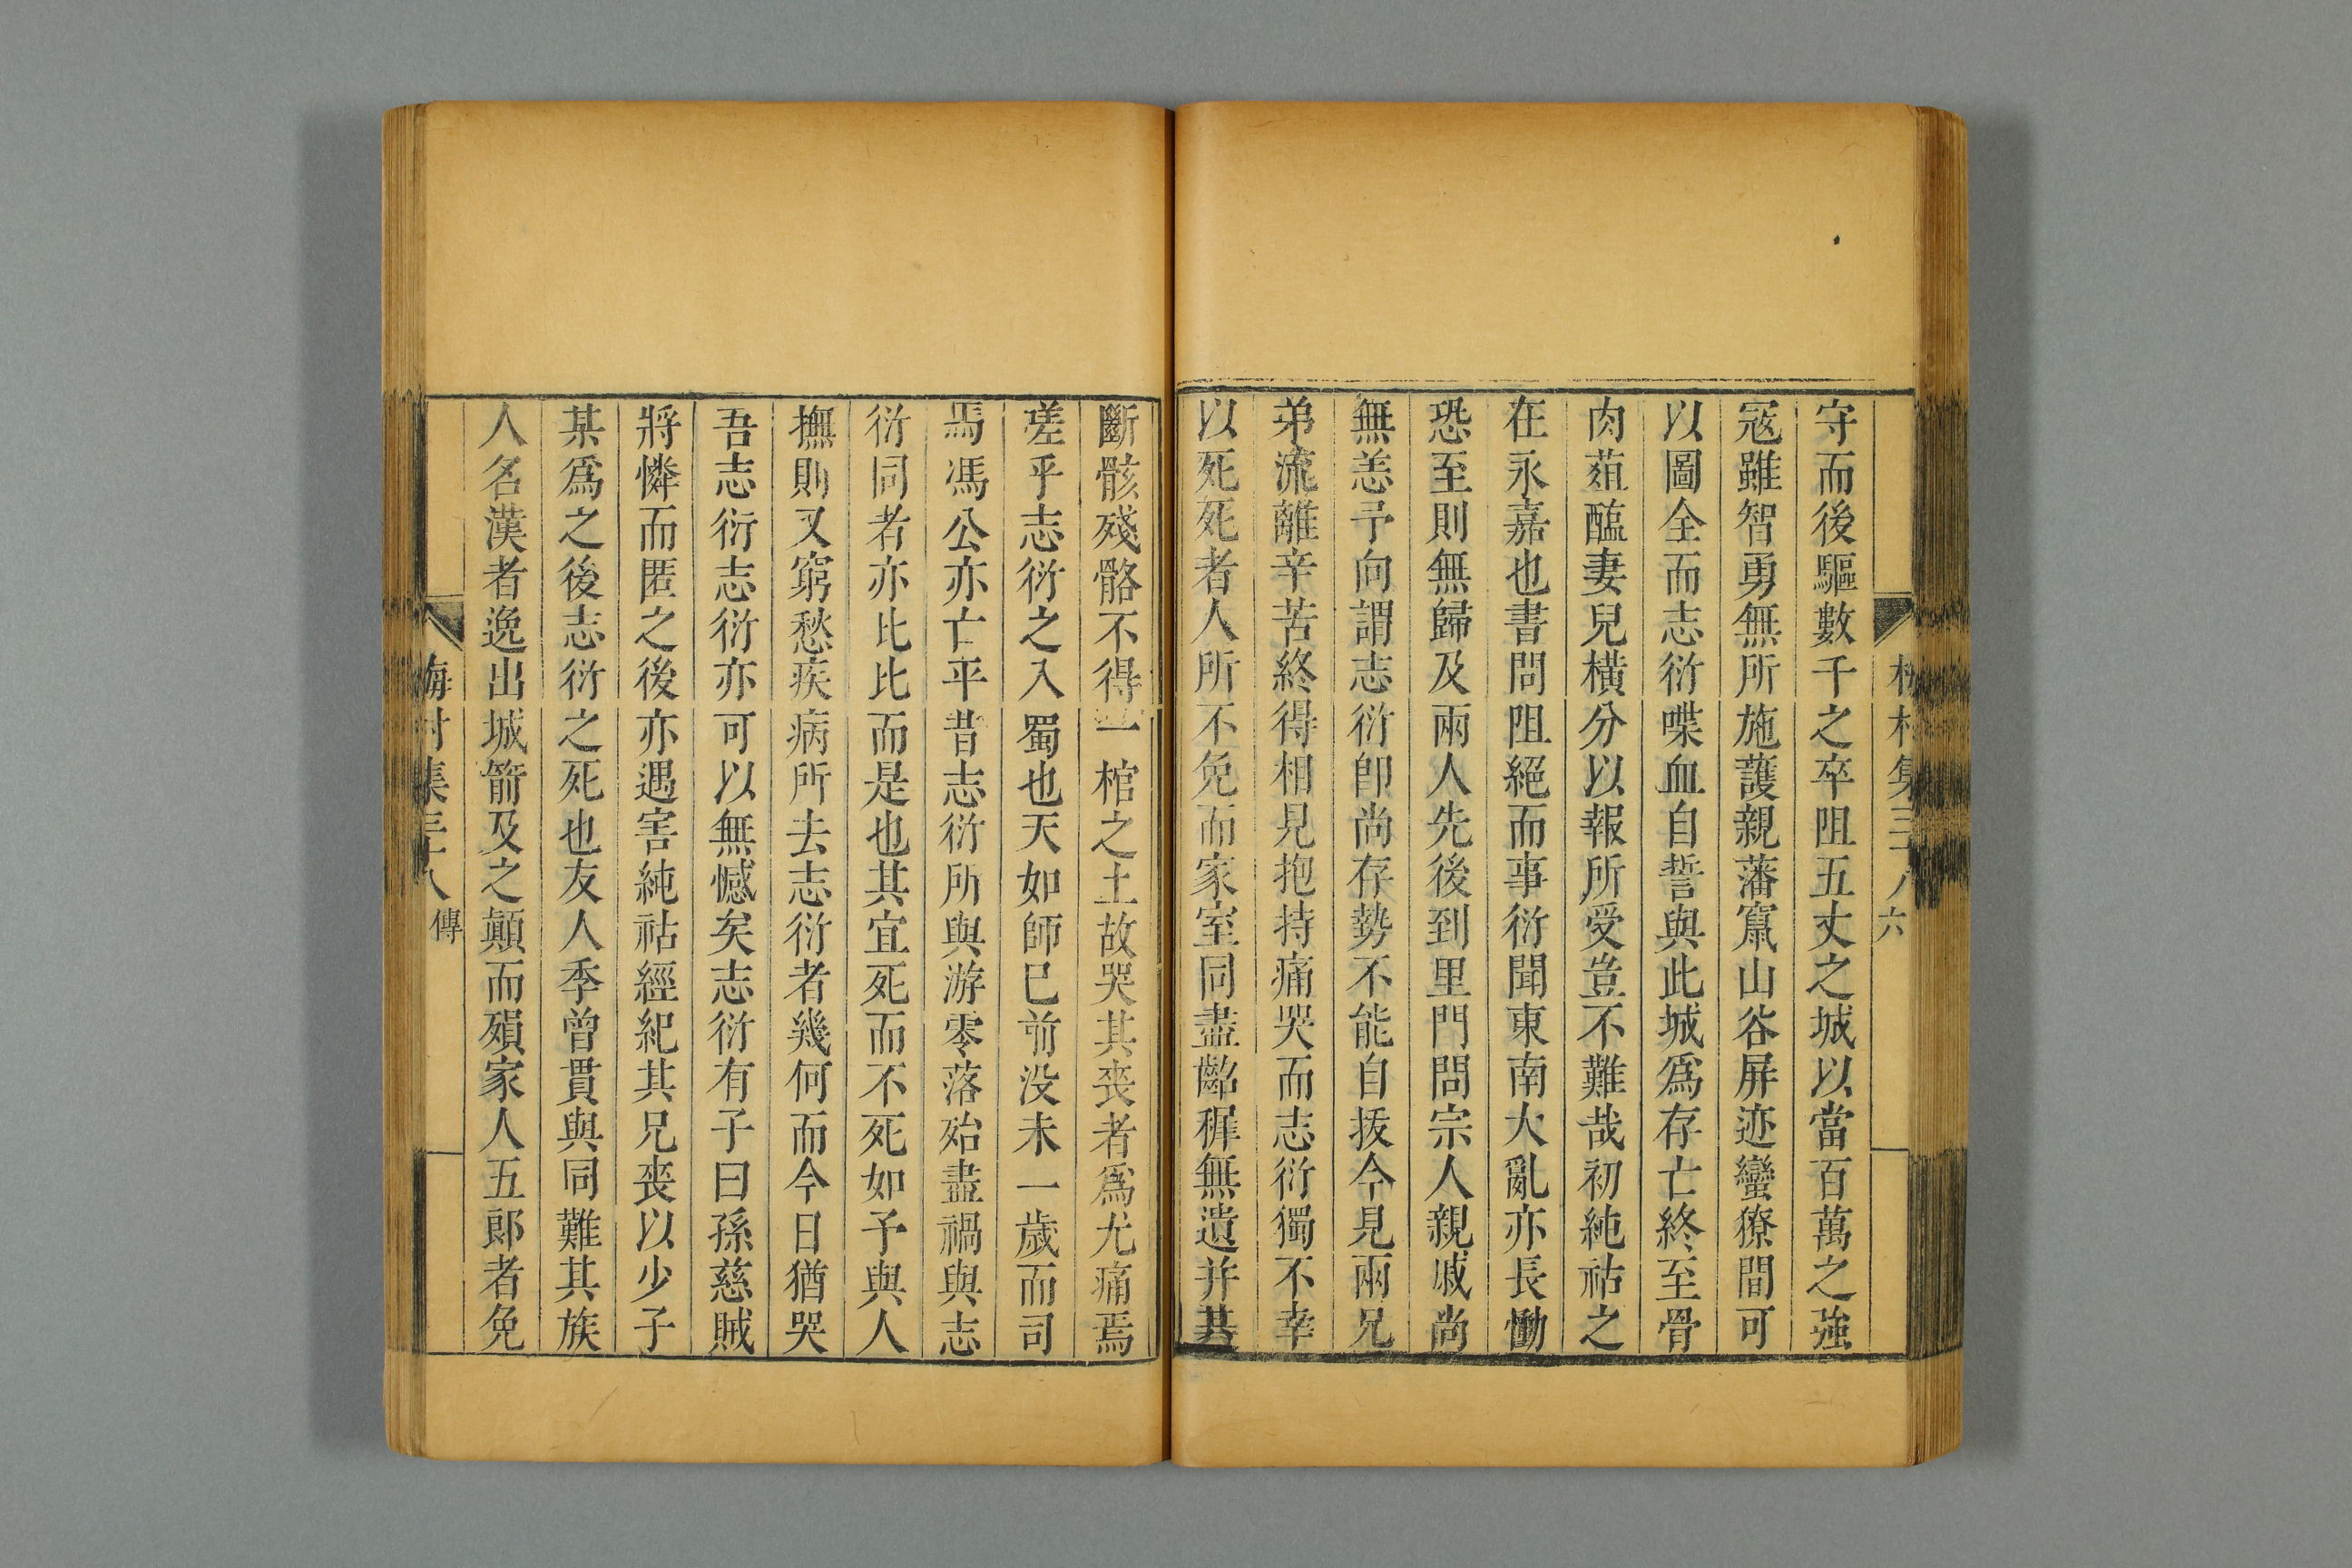 守而後驅數千之卒阻五丈之城以當百萬之強
寇雖智勇無所施護親藩竄山谷屏迹蠻獠間可
以圖全而志衍喋血自誓與此城爲存亡終至骨
肉葅醢妻兒橫分以報所受豈不難哉初純祜之
在永嘉也書問阻絕而事衍聞東南大亂亦長慟
恐至則無歸及兩人先後到里門問宗人親戚尚
無恙予向謂志衍卽尚存勢不能自拔今見兩兄
弟流離辛苦終得相見抱持痛哭而志衍獨不幸
以死死者人所不免而家室同盡齠穉無遺并其
斷骸殘骼不得一棺之土故哭其喪者爲尤痛焉
嗟乎志衍之入蜀也天如師已前没未一歲而司
馬馮公亦亡平昔志衍所與游零落殆盡禍與志
衍同者亦比比而是也其宜死而不死如予與人
撫則又窮愁疾病所去志衍者幾何而今日猶哭
吾志衍志衍亦可以無憾矣志衍有子曰孫慈賊
將憐而匿之後亦遇害純祜經紀其兄喪以少子
某爲之後志衍之死也友人季曾貫與同難其族
人名漢者逸出城箭及之顚而殞家人五郎者免
梅村集三十八
傳
六